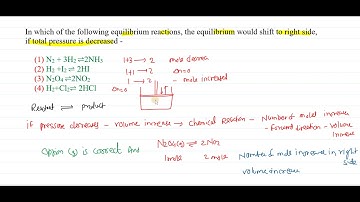 In which of the following equilibrium reactions, the equilibrium would shift to right side,
if total pressure is decreased -
(1) N₂ + 3H₂⇌2NH₃ 1+3 → 2 mole decrea
(2) H₂ +I₂⇌ 2HI 1+1 → 2 Δn=0
(3) N₂O₄⇌2NO₂ 1 → 2 - mole increased
(4) H₂+Cl₂⇌ 2HCl Δn=0
React ⇌ product
if pressure decreases - volume increase → chemical Reaction - Number of mole increase
- Forward direction - volume increa
option (3) is correct Ans N₂O₄(g) ⇌ 2NO₂
1mole 2 mole Number of mole increase in right side
volume increase